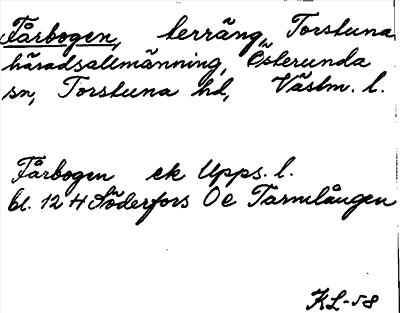 Fårbogen, terräng, Torstuna
häradsallmänning, Österunda
sn, Torstuna hd, Västm. l.
Fårbogen ek Upps. l.
bl. 12 H Söderfors 0e Tarmlången
KL-58